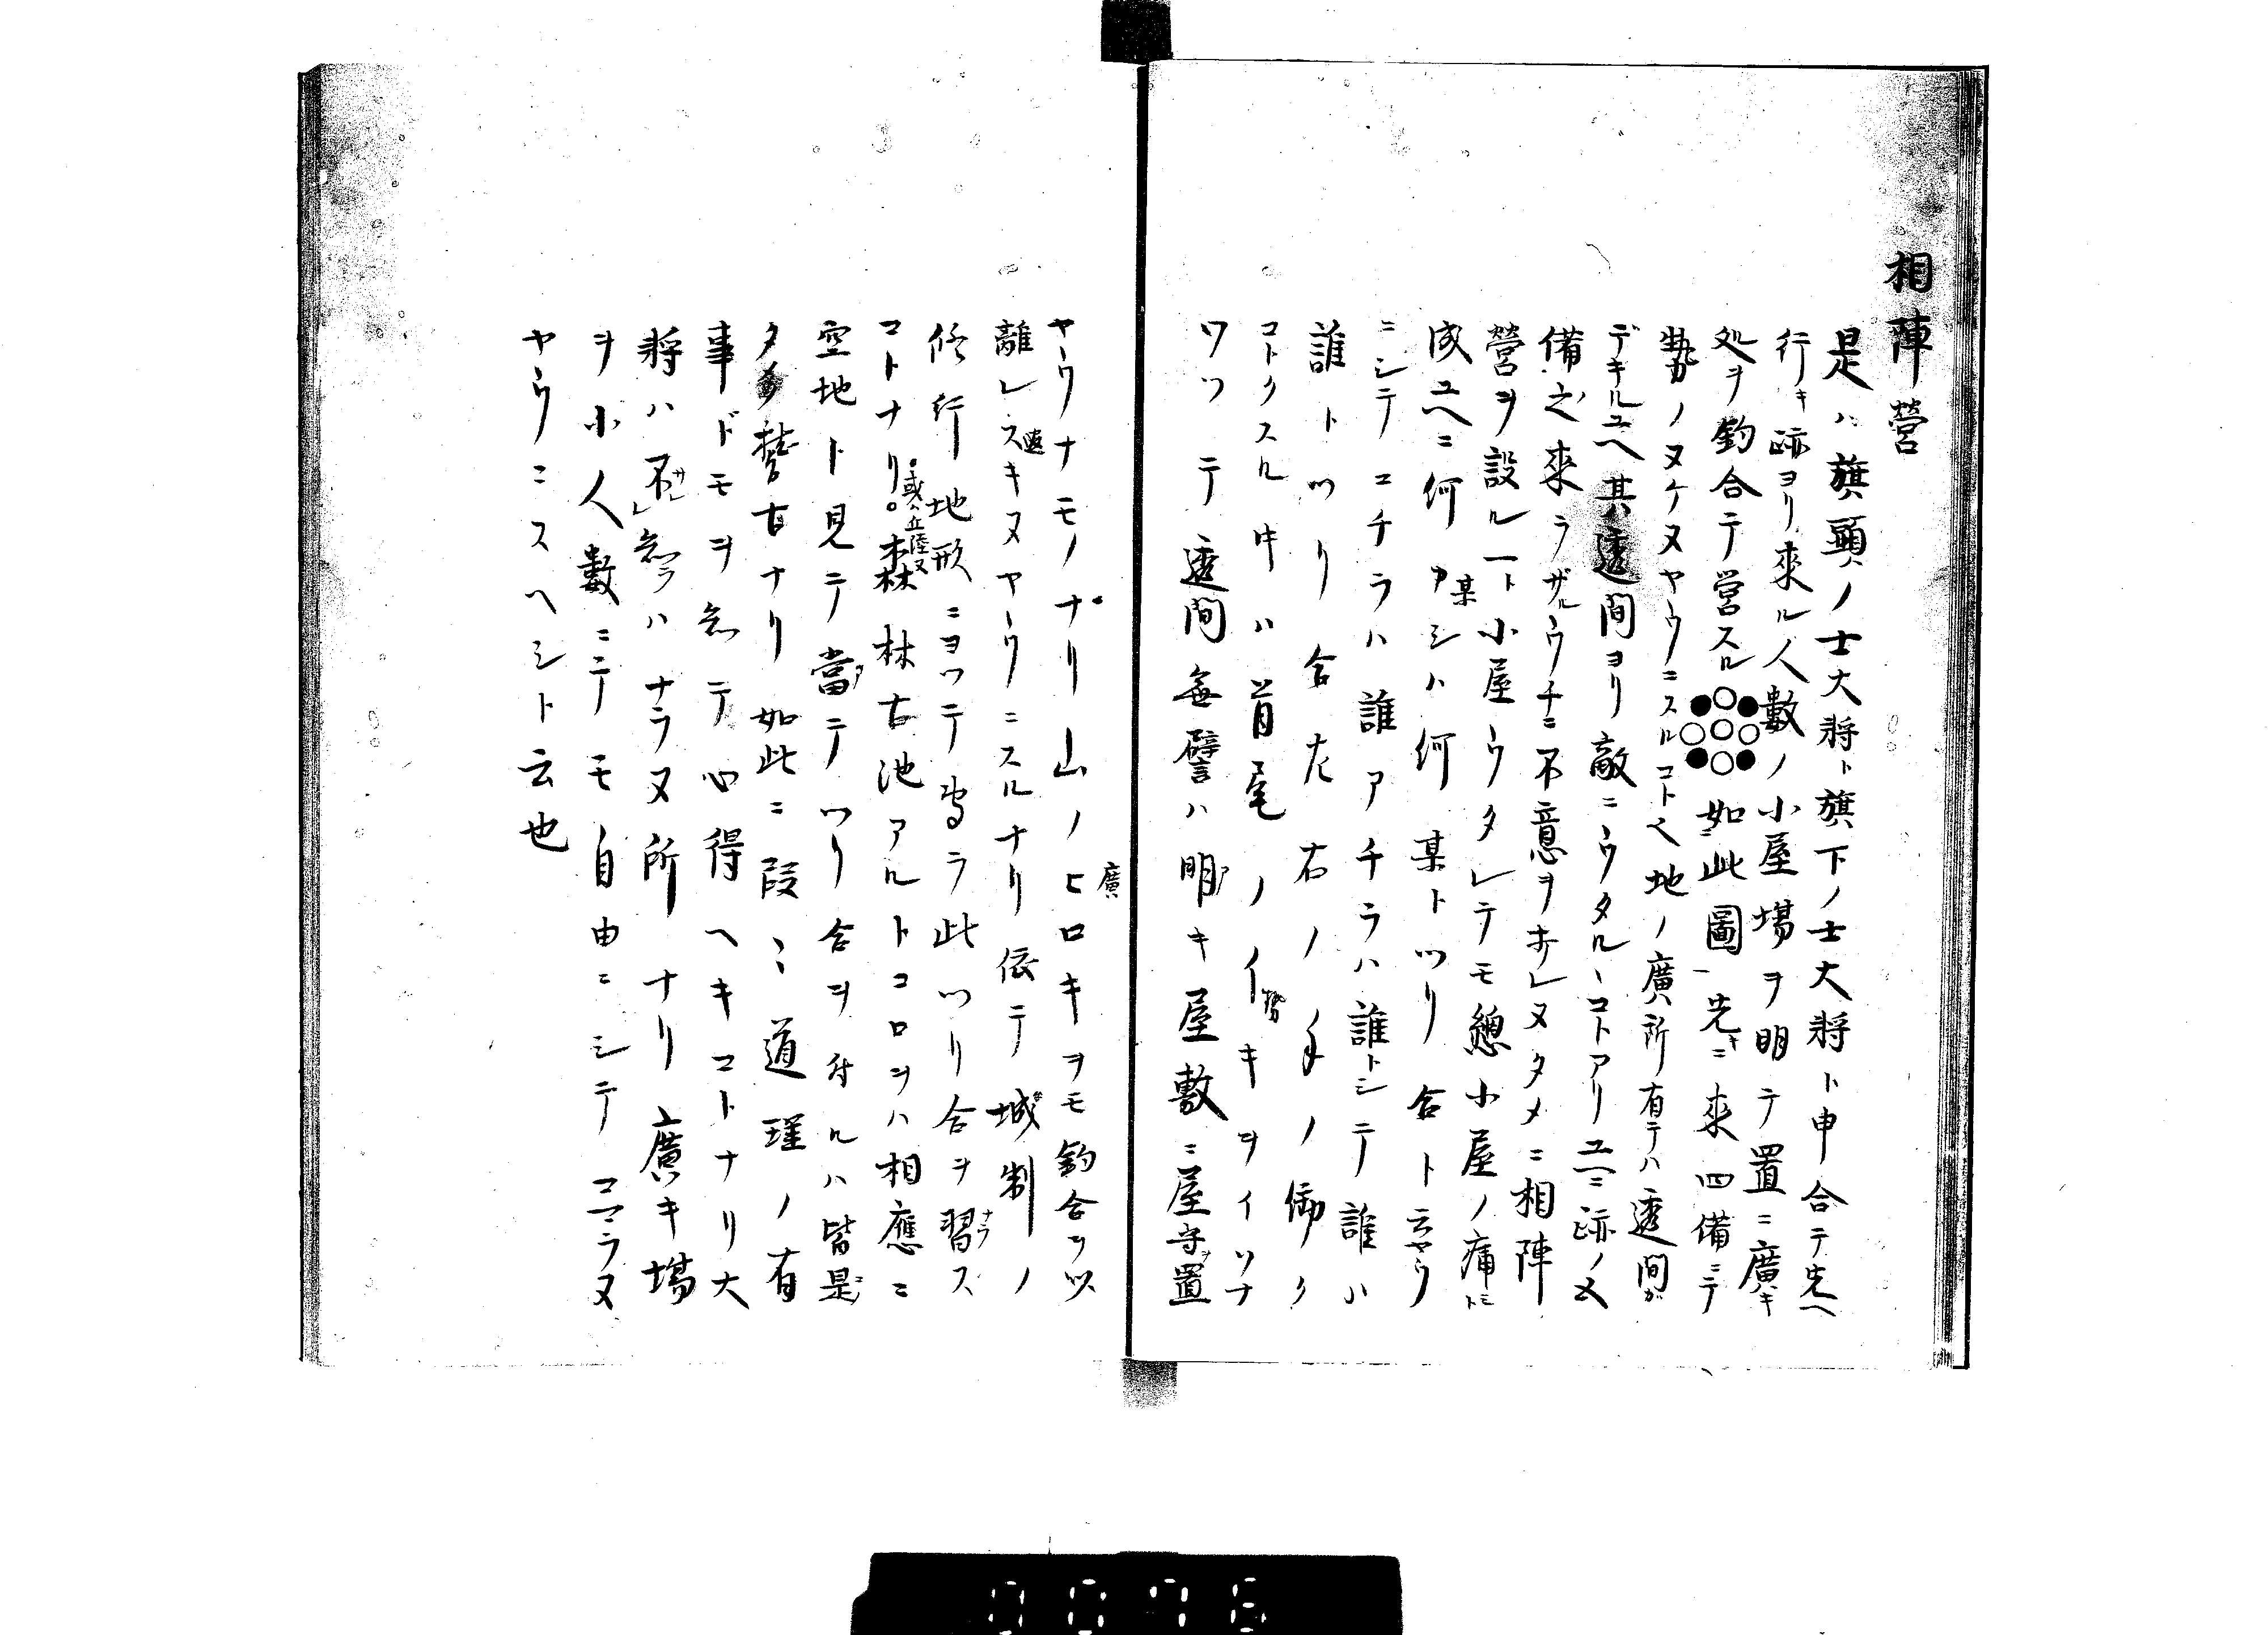 相陣營
是ハ旗頭ノ士大将ト旗下ノ士大将ト申合テ先ヘ
行キ跡ヨリ來ル人數ノ小屋場ヲ明テ置ニ廣キ
処ヲ釣合テ営スル如此圖一先キニ來四備ニテ
勢カノヌケヌヤウニスルコト也地ノ廣所有テハ透間ガ
デキルユヘ其透間ヨリ敵ニウタルヽコトアリユヘニ跡ノ又
備之來ラザルウチニ不意ヲホレヌタメニ相陣
營ヲ設ル一ト小屋ウタレテモ總小屋ノ痛ミト
成ユヘニ何某カシハ何某トツリ合ト云ヤウ
ニシテコチラハ誰アチラハ誰トシテ誰ハ
誰トツリ合左右ノ手ノ働ク
コトクスル中ハ首尾ノイキ勢ヲイツナ
ワツテ透間無譬ハ明キ屋敷ニ屋守置
ヤウナモノナリ山ノヒロキ廣ヲモ釣合ツツ
離レスキヌヤウニスルナリ依テ城制ノ
修行地形ニヨツテ専ラ此ツリ合ヲ習ナラフス
コトナリ。森林古池アルトコロヲハ相應ニ
空地ト見テ當テツリ合ヲ付ルハ皆是
タメ稽古ナリ如此ニ段々道理ノ有
事ドモヲ知テ心得ヘキコトナリ大
将ハ不知ハナラヌ所ナリ廣キ場
ヲ小人數ニテモ自由ニシテコマラヌ
ヤウニスヘシト云也
0076